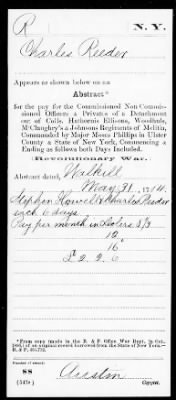 R
N.Y.
Charles Reeder
Appears as shown below on an
Abstract*
for the pay for the Commissioned Non Commissioned
Officers & Privates of a Detachment
out of Colls. Hathornis Ellisons, Woodhuls,
McClaghry's & Johnsons Regiments of Melitia,
Commanded by Major Moses Phillips in Ulster
County & State of New York, Commencing &
Ending as follows both Days Included.
(Revolutionary War.)
Abstract dated, Wallkill
May 31, 1784.
Stephen Howell & Charles Reeder
each 6 days.
Pay per month in Dolers
12
16
£ 2. 2. 6
*From copy made in the R. & P. Office War Dept., in
of an original record borrowed from the State of New York.—
R. & P.
Austin
Copyist.